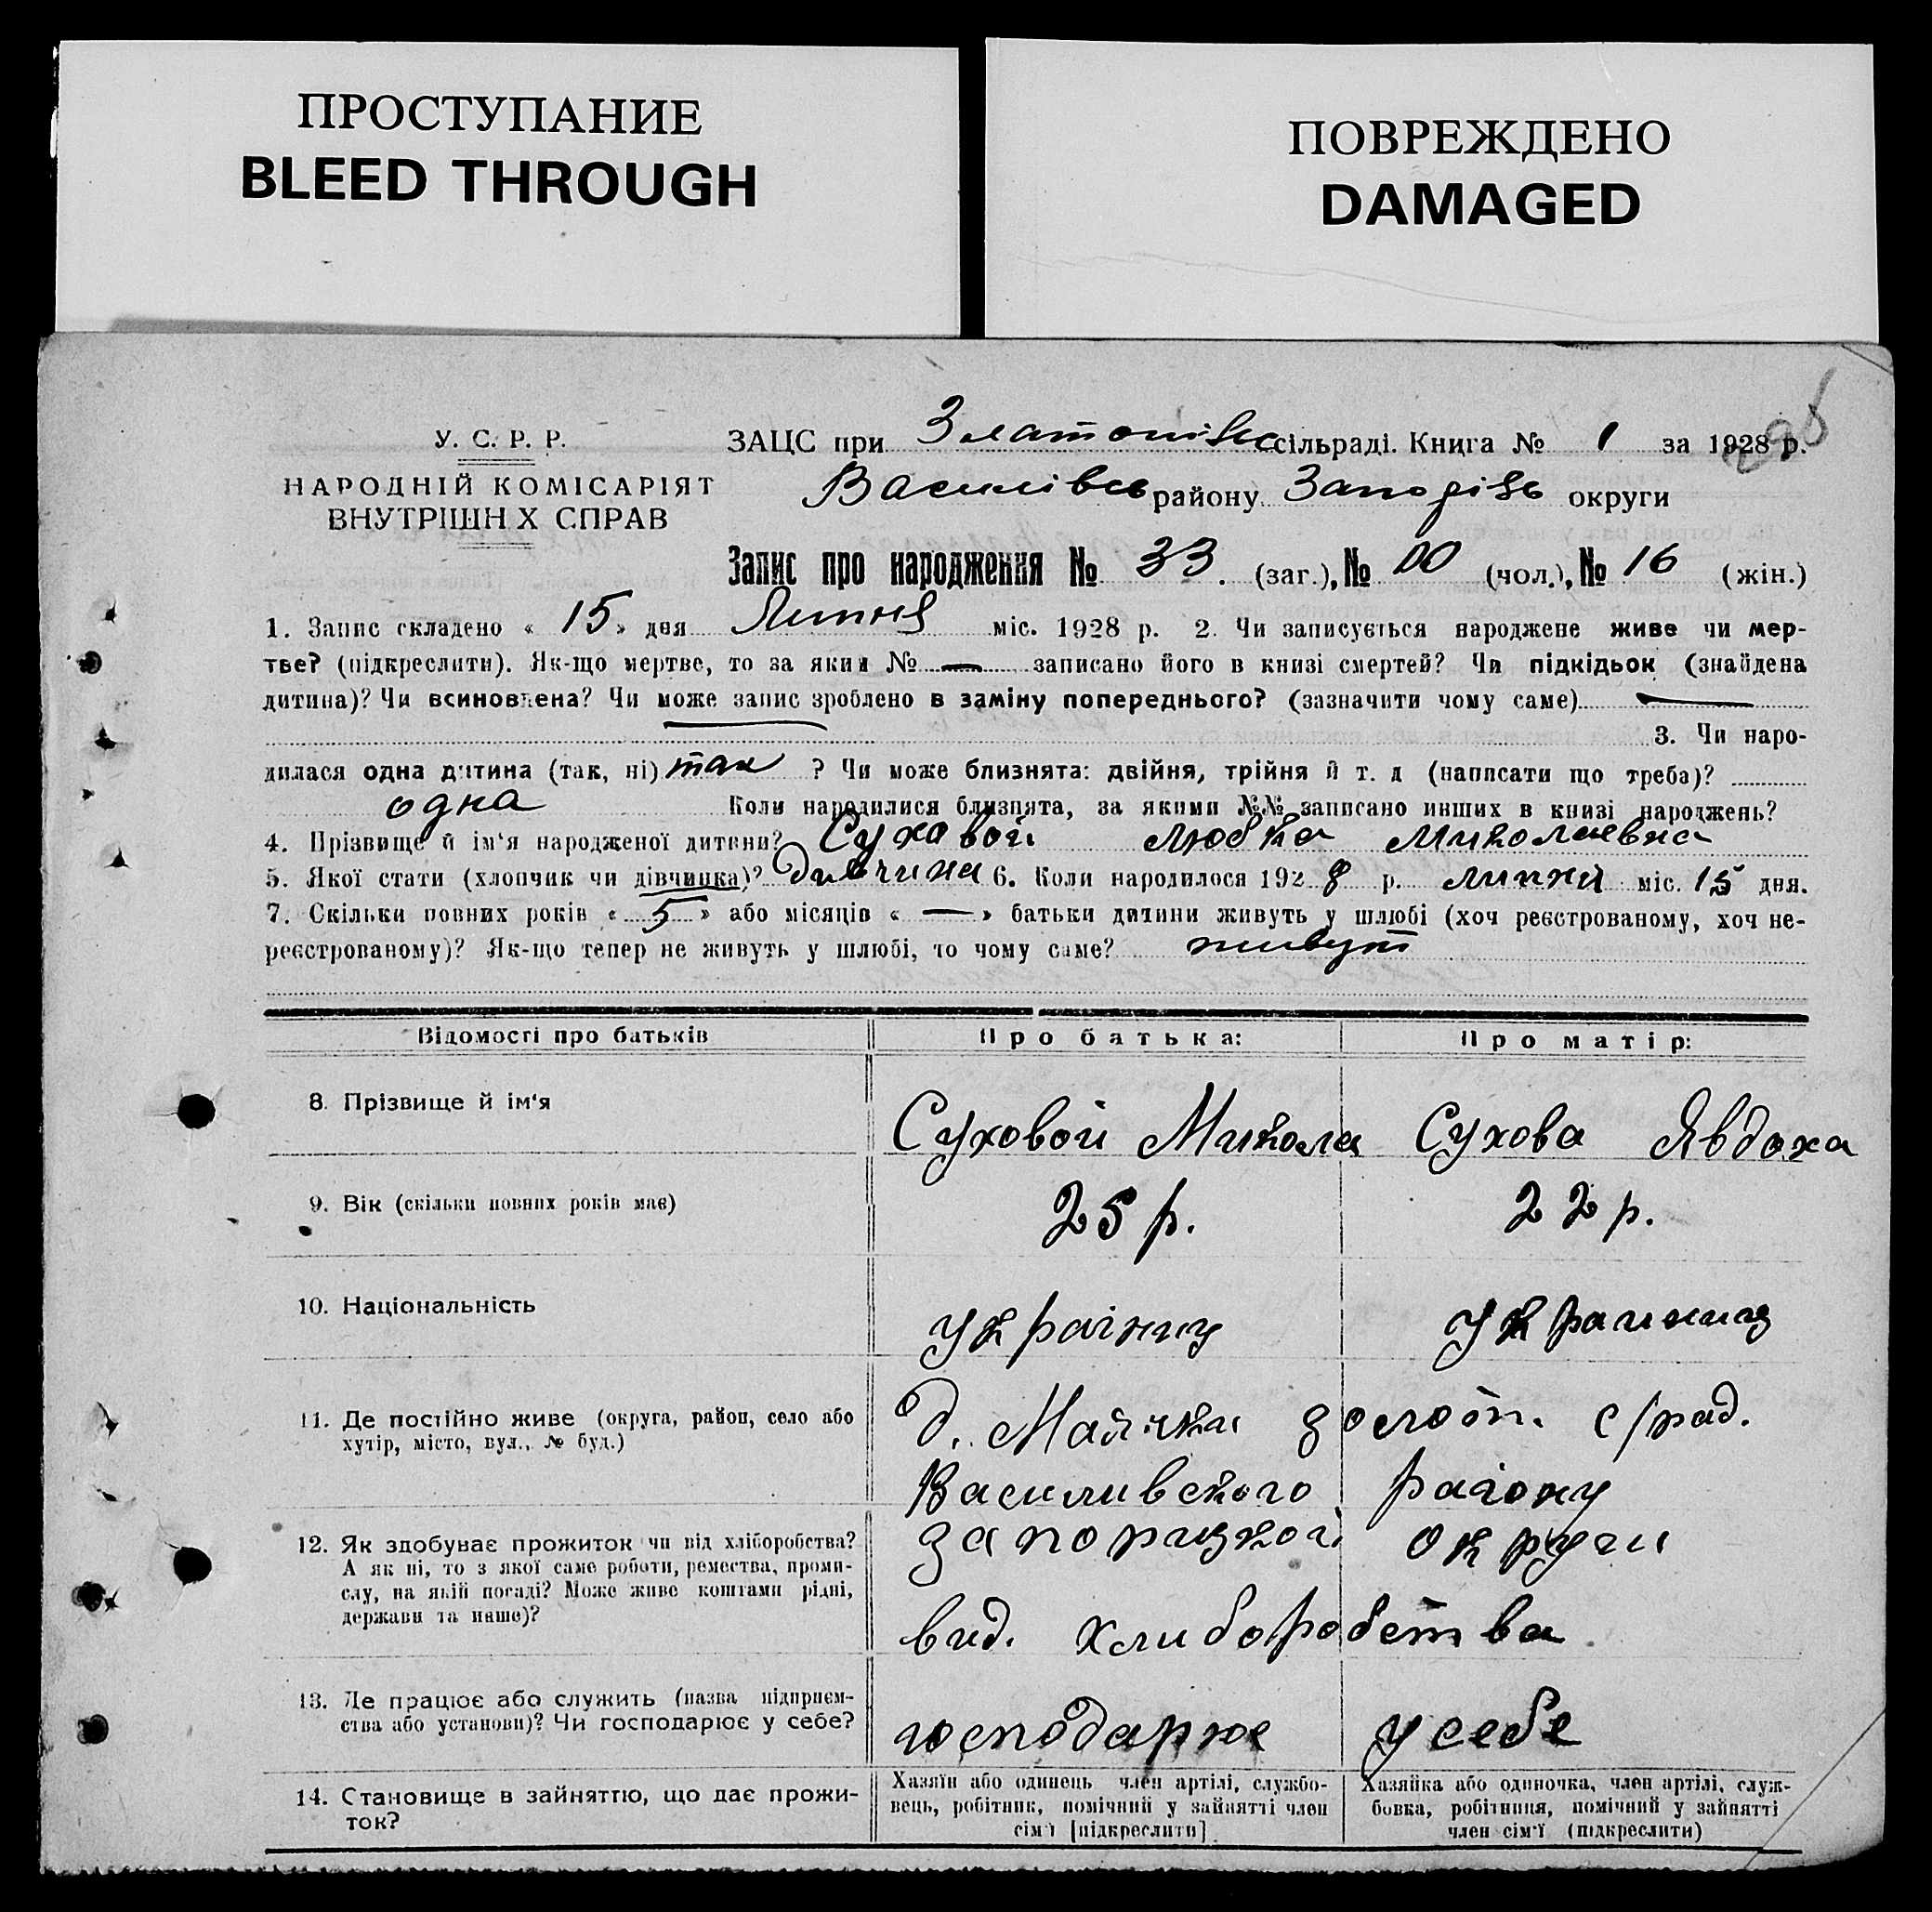 ПРОСТУПАНИЕ
BLEED THROUGH
ПОВРЕЖДЕНО
DAMAGED
У. С. Р. Р.
НАРОДНІЙ КОМІСАРІЯТ
ВНУТРІШН Х СПРАВ
ЗАЦС при сільраді. Книга № 1 за 1928 р.
Василівсь району Запорізь округи
Запис про народження № 33. (заг.), № 00 (чол.), № 16 (жін.)
1. Запис складено « 15 » дня Липня міс. 1928 р. 2. Чи записується народжене живе чи мер-
тве? (підкреслити). Як-що мертве, то за яким № — записано його в книзі смертей? Чи підкідьок (знайдена
дитина)? Чи всиновлена? Чи може запис зроблено в заміну попереднього? (зазначити чому саме) —
3. Чи наро-
дилася одна дитина (так, ні) так ? Чи може близнята: двійня, трійня й т. д (написати що треба)?
одна Коли народилися близнята, за якими №№ записано инших в книзі народжень?
4. Прізвище й ім'я народженої дитини? Суховой Любка Миколаевна
5. Якої стати (хлопчик чи дівчинка)? дивчина 6. Коли народилося 1928 р. липня міс. 15 дня.
7. Скільки повних років « 5 » або місяців « — » батьки дитини живуть у шлюбі (хоч реєстрованому, хоч не-
реєстрованому)? Як-що тепер не живуть у шлюбі, то чому саме? живут
Відомості про батьків Про батька: Про матір:
8. Прізвище й ім'я Суховой Микола Сухова Явдоха
9. Вік (скільки повних років має) 25 р. 22 р.
10. Національність україниц украиниця
11. Де постійно живе (округа, район, село або
хутір, місто, вул., № буд.)
д. Маячка золот. с/рад.
Василивского району
12. Як здобуває прожиток чи від хліборобства?
А як ні, то з якої саме роботи, ремества, проми-
слу, на якій посаді? Може живе коштами рідні,
держави та инше)?
запоризкоі округи
вид. хлиборобства
13. Де працює або служить (назва підприєм-
ства або установи)? Чи господарює у себе?
господарює у себе
14. Становище в зайняттю, що дає прожи-
ток?
Хазяїн або одинець член артілі, службо-
вець, робітник, помічний у зайнятті член
сім'ї [підкреслити]
Хазяйка або одиночка, член артілі, служ-
бовка, робітниця, помічний у зайнятті
член сім'ї (підкреслити)